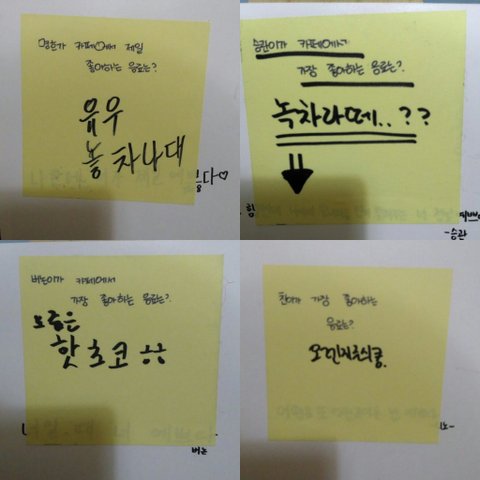 명호가 카페에서 제일
좋아하는 음료는?
유우
차나대
다♡
승관이가 카페에서
가장 좋아하는 음료는?
녹차라떼..??
힘
-승관
버논이가 카페에서
가장 좋아하는 음료는?
요즘은
핫초코
버논
찬이가 가장 좋아하는
음료는?